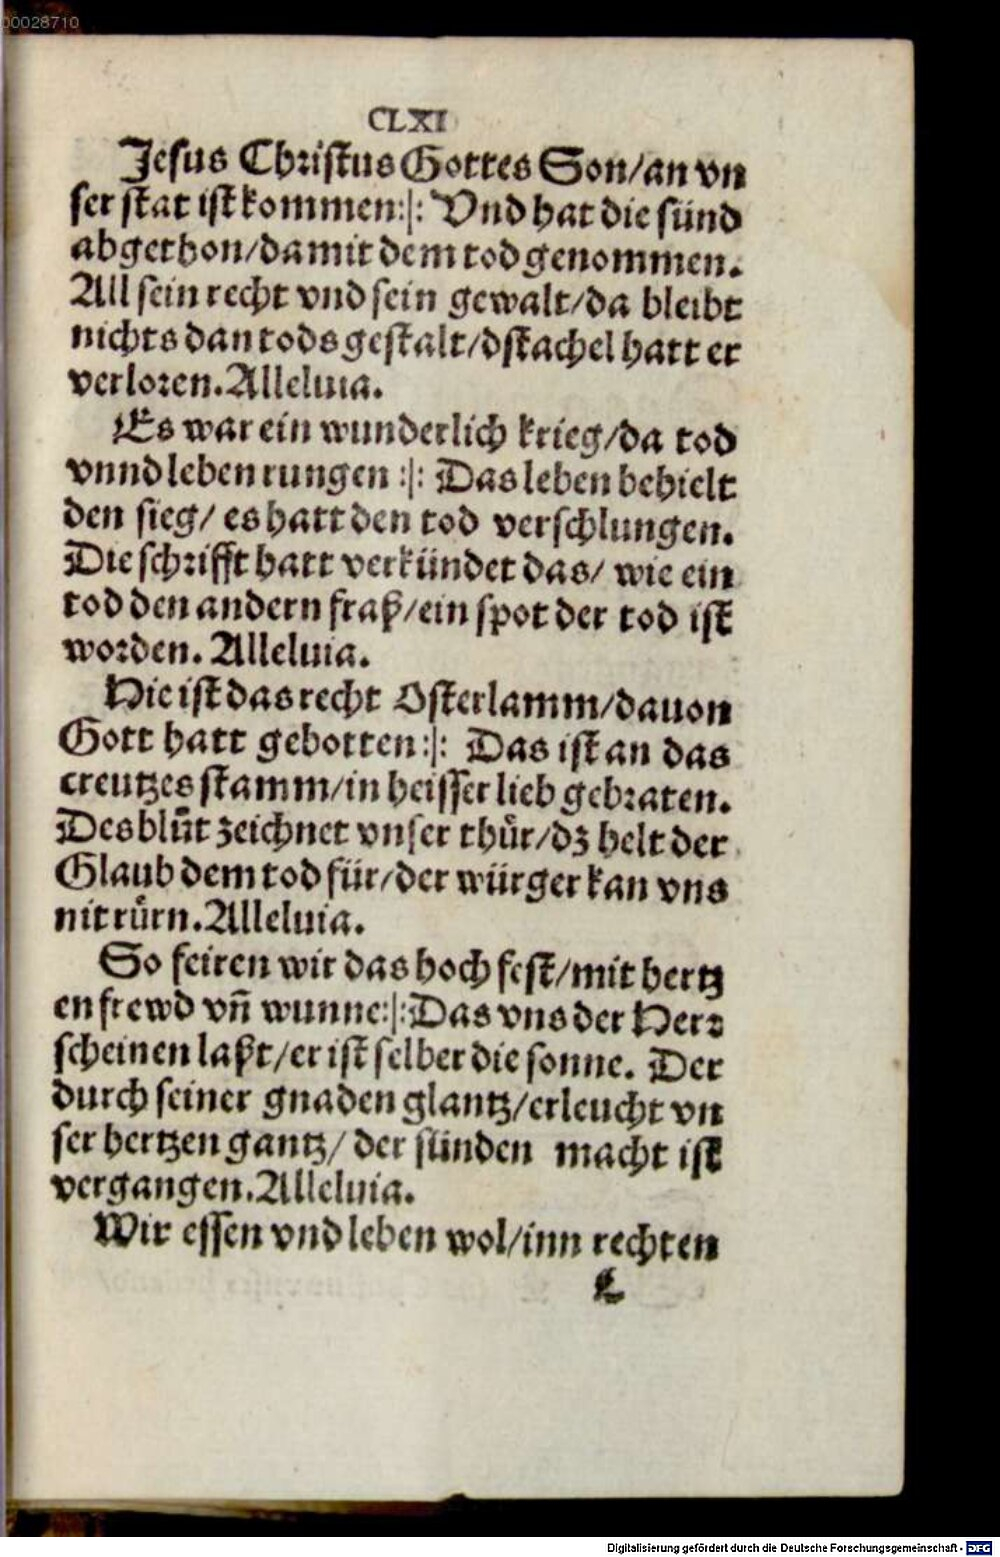 00028710
CLXI
Jesus Christus Gottes Son/an vn
ser stat ist kommen:|: Vnd hat die sünd
abgethon/damit dem tod genommen.
All sein recht vnd sein gewalt/da bleibt
nichts dan tods gestalt/dstachel hatt er
verloren. Alleluia.
Es war ein wunderlich krieg/da tod
vnnd leben rungen :|: Das leben behielt
den sieg/ es hatt den tod verschlungen.
Die schrifft hatt verkündet das/ wie ein
tod den andern fraß/ein spot der tod ist
worden. Alleluia.
Hie ist das recht Osterlamm/dauon
Gott hatt gebotten:|: Das ist an das
creutzes stamm/in heisser lieb gebraten.
Des blůt zeichnet vnser thür/dz helt der
Glaub dem tod für/der würger kan vns
nit rürn. Alleluia.
So feiren wir das hoch fest/mit hertz
en frewd vñ wunne:|: Das vns der Herr
scheinen laßt/er ist selber die sonne. Der
durch seiner gnaden glantz/erleucht vn
ser hertzen gantz/ der sünden macht ist
vergangen. Alleluia.
Wir essen vnd leben wol/inn rechten
Digitalisierung gefördert durch die Deutsche Forschungsgemeinschaft - DFG